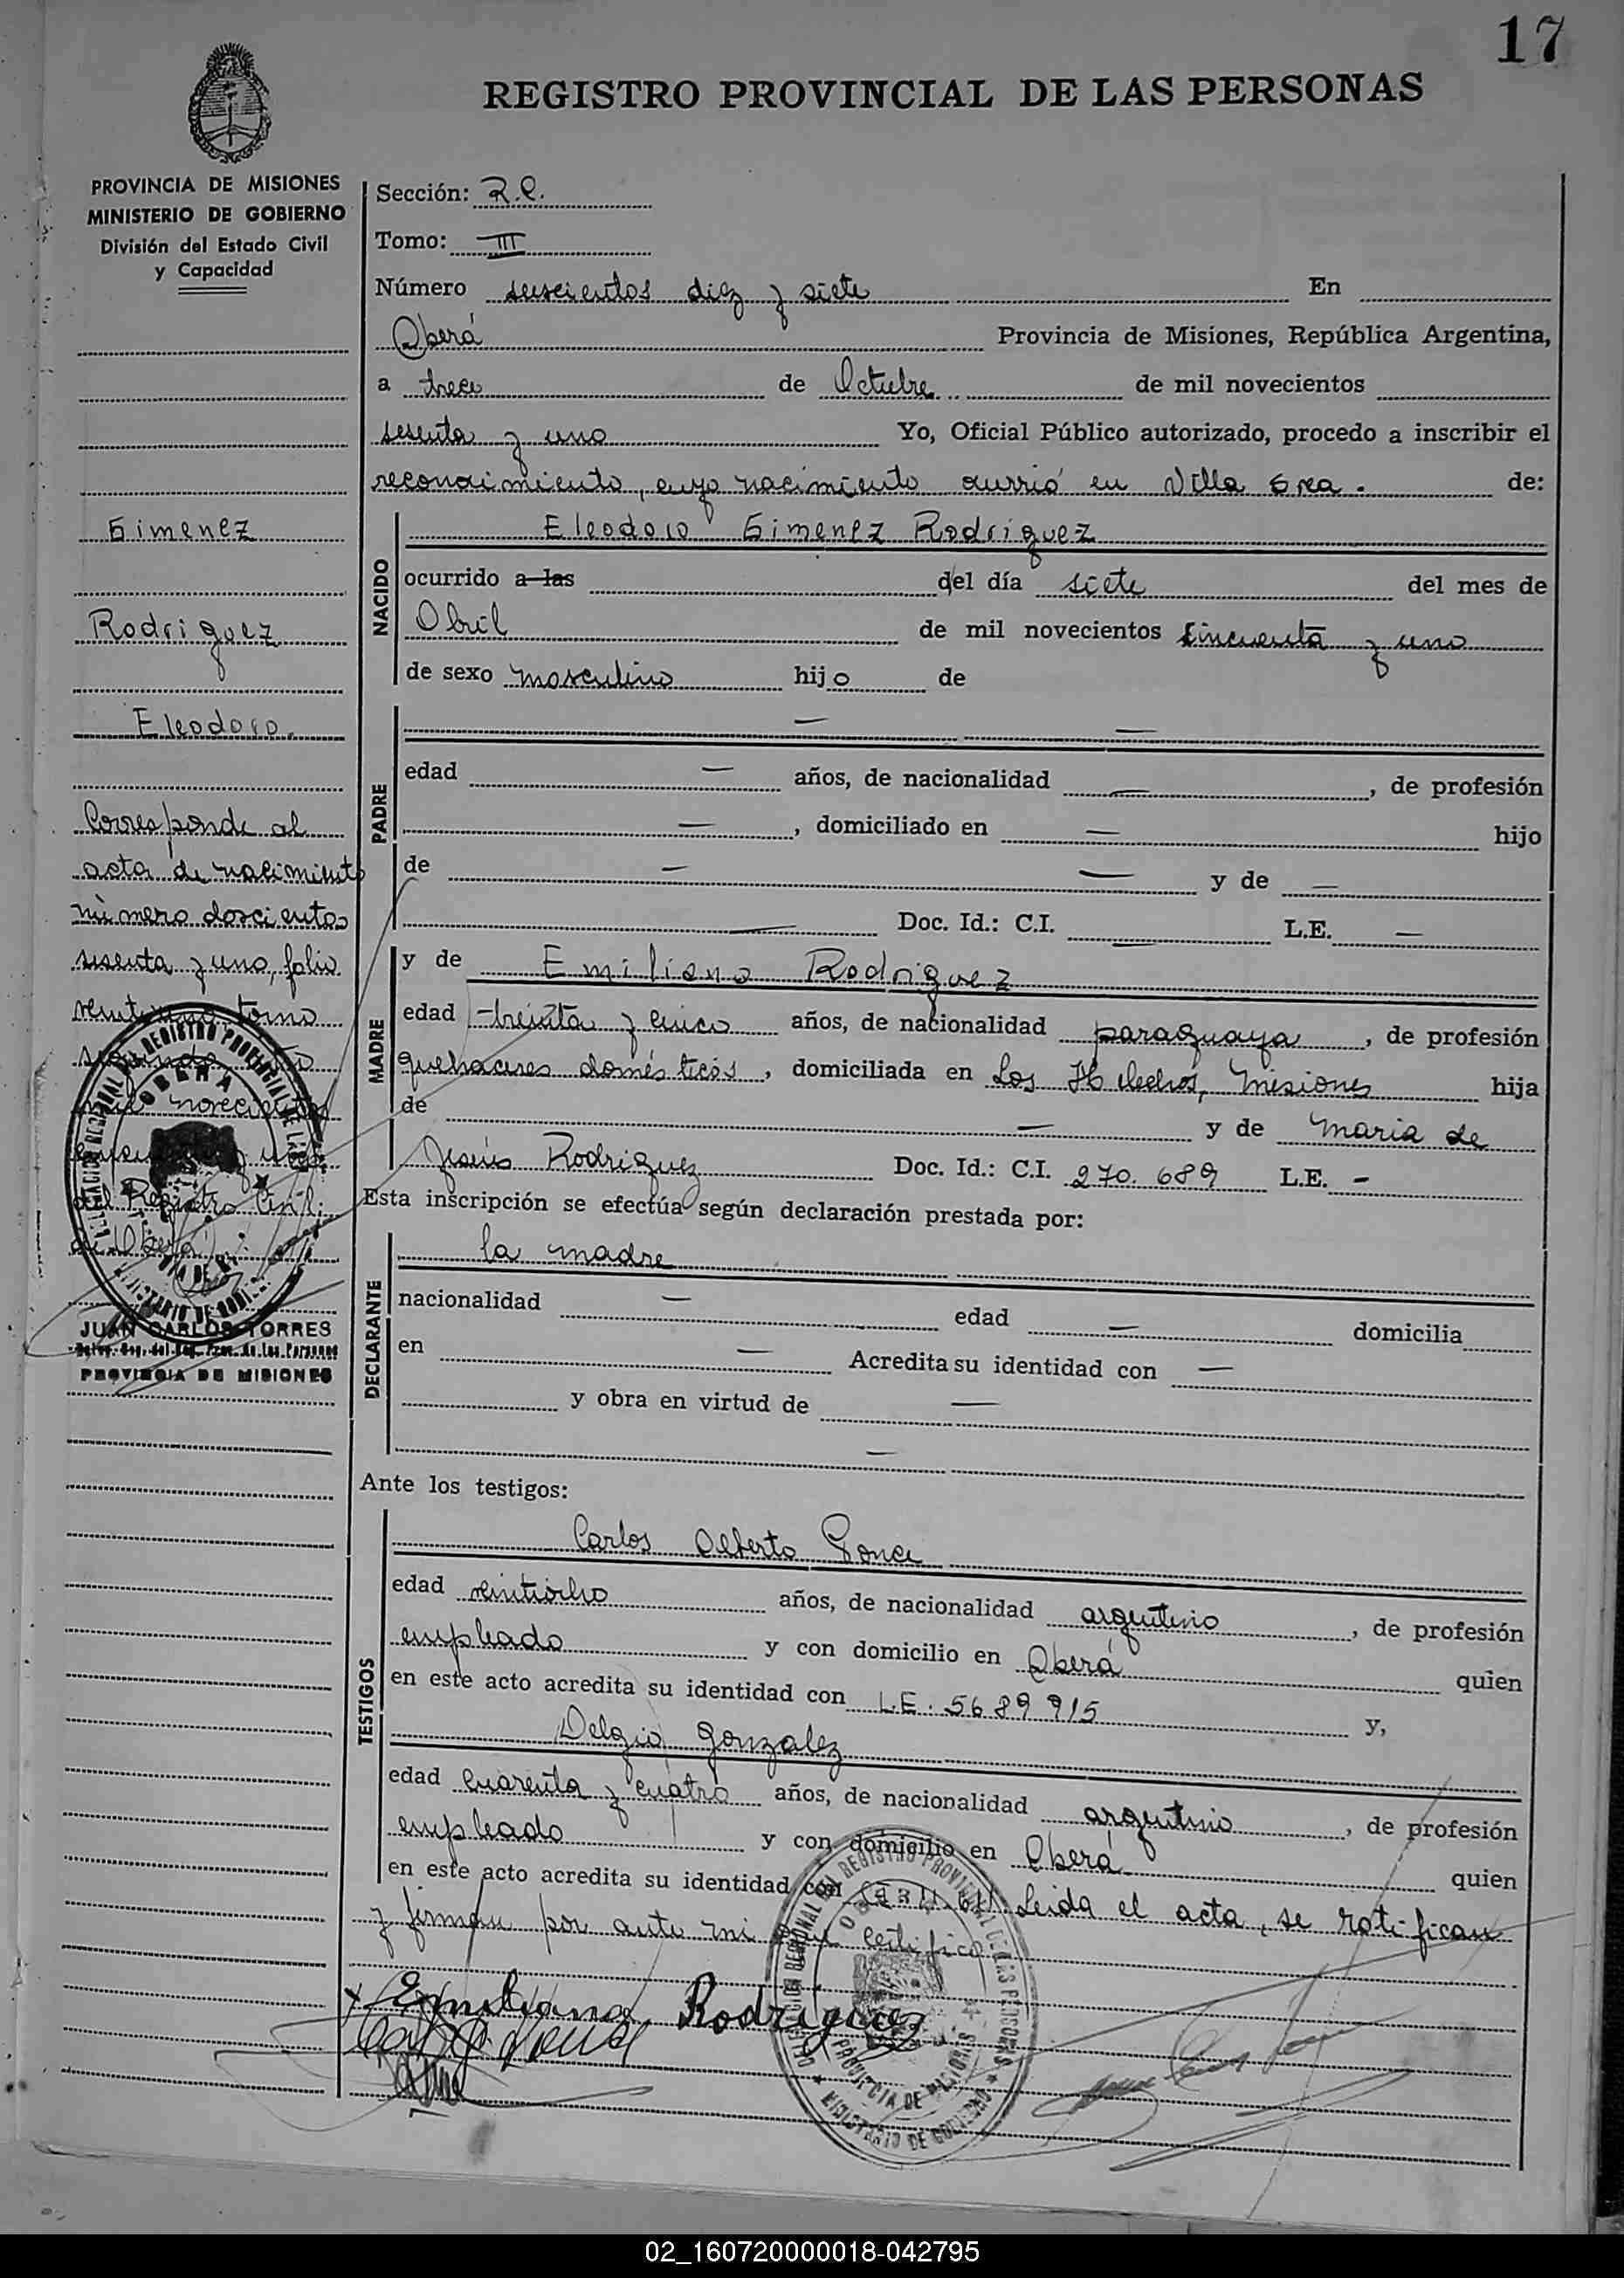 17
REGISTRO PROVINCIAL DE LAS PERSONAS
PROVINCIA DE MISIONES
MINISTERIO DE GOBIERNO
División del Estado Civil
y Capacidad
Sección: R.C.
Tomo: III
Número seiscientos diez y siete En
Oberá Provincia de Misiones, República Argentina,
a trece de Octubre de mil novecientos
sesenta y uno Yo, Oficial Público autorizado, procedo a inscribir el
reconocimiento, cuyo nacimiento ocurrió en Villa de:
Gimenez
Rodriguez
Eleodoro.
Corresponde al
acta de nacimiento
número doscientos
sesenta y uno, folio
tomo
segundo
mil novecientos
del Registro Civil
de Oberá
JUAN CARLOS TORRES
PROVINCIA DE MISIONES
NACIDO
Eleodoro Gimenez Rodriguez
ocurrido a las del día siete del mes de
Abril de mil novecientos cincuenta y uno
de sexo masculino hijo de
PADRE
— —
edad — años, de nacionalidad —, de profesión
—, domiciliado en — hijo
de — — y de —
— Doc. Id.: C.I. — L.E. —
MADRE
y de Emiliana Rodriguez
edad treinta y cinco años, de nacionalidad paraguaya, de profesión
quehaceres domésticos, domiciliada en Los Helechos, Misiones hija
de — y de Maria de
Jesús Rodriguez Doc. Id.: C.I. 270.689 L.E. -
Esta inscripción se efectúa según declaración prestada por:
DECLARANTE
la madre
nacionalidad — edad — domicilia
en — Acredita su identidad con —
y obra en virtud de —
—
Ante los testigos:
TESTIGOS
Carlos Alberto Ponce
edad veintiocho años, de nacionalidad argentino, de profesión
empleado y con domicilio en Oberá quien
en este acto acredita su identidad con L.E. 5689915 y,
Delgio Gonzalez
edad cuarenta y cuatro años, de nacionalidad argentino, de profesión
empleado y con domicilio en Oberá quien
en este acto acredita su identidad con Leida el acta, se ratifican
y firman por ante mi que certifico
Emiliana Rodriguez
DELEGACION REGIONAL DEL REGISTRO PROVINCIAL DE LAS PERSONAS
OBERA
PROVINCIA DE MISIONES
MINISTERIO DE GOBIERNO
02_160720000018-042795